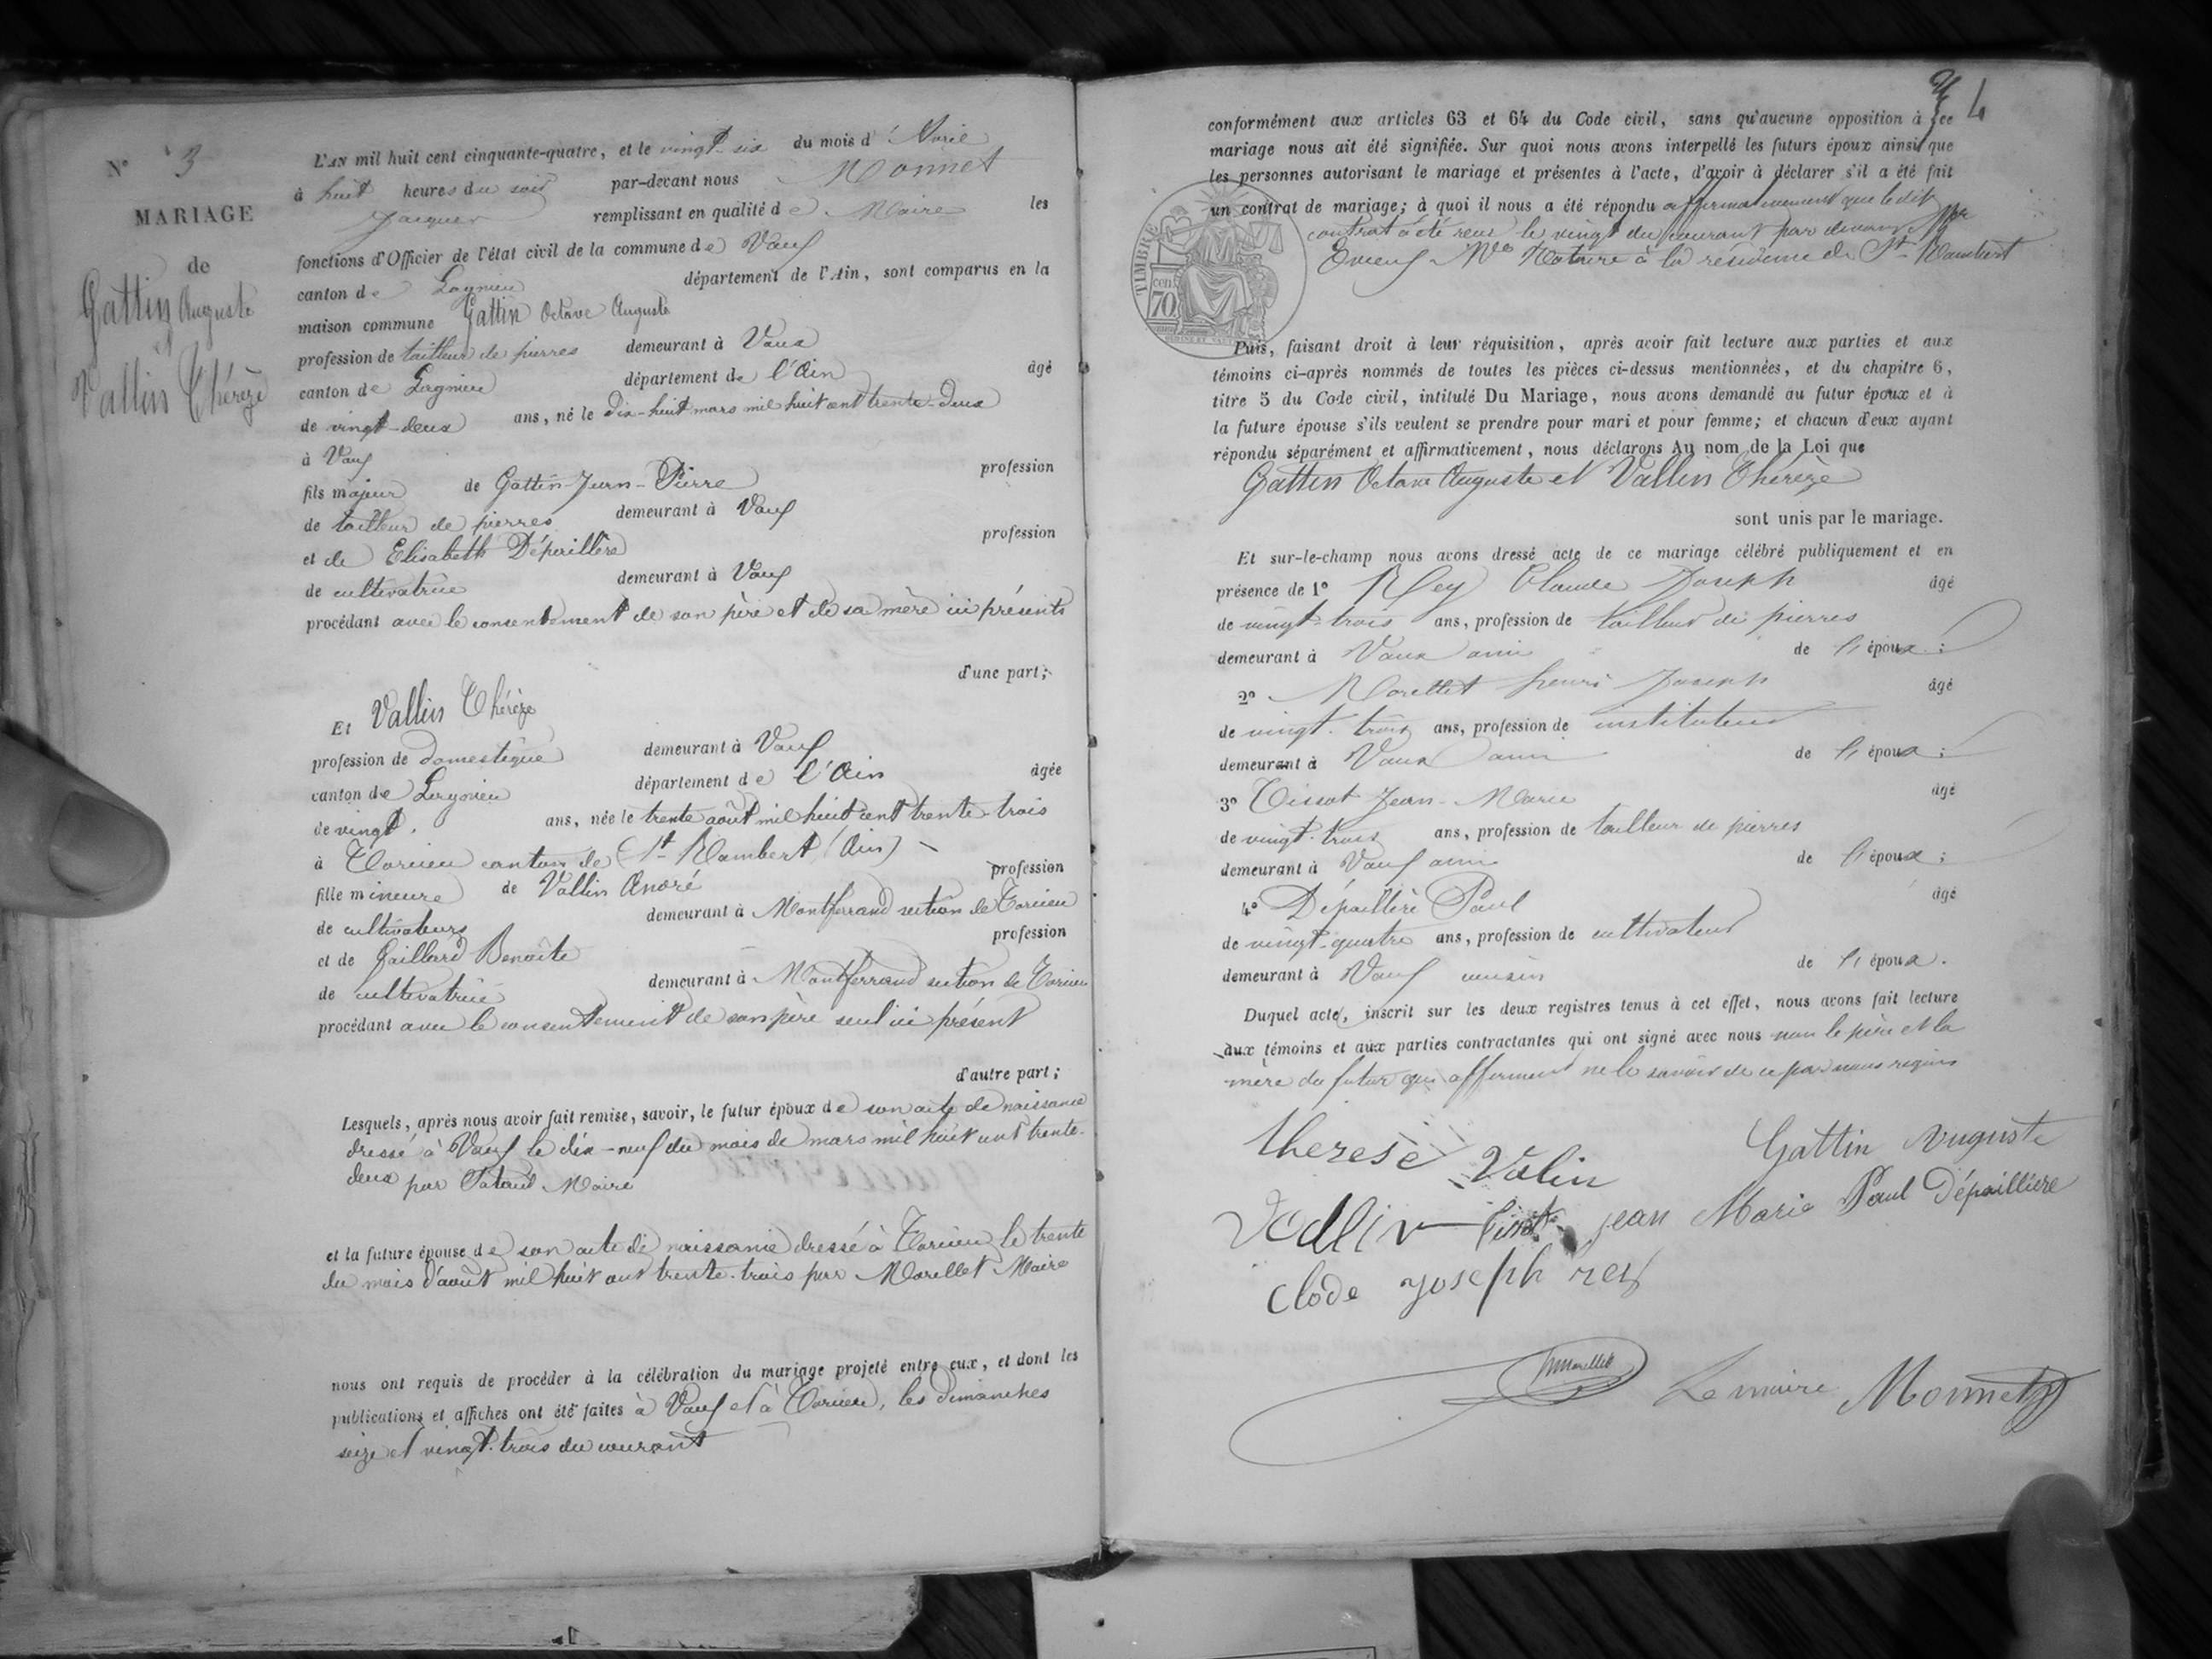 N° 3
MARIAGE
de
Gattin Auguste
et
Vallin Thérèze
L'AN mil huit cent cinquante-quatre, et le vingt-six du mois d'Avril
à huit heures du soir par-devant nous Monnet
Jacques remplissant en qualité de Maire les
fonctions d'Officier de l'état civil de la commune de Vaux
canton de Lagnieu département de l'Ain, sont comparus en la
maison commune Gattin Octave Auguste
profession de tailleur de pierres demeurant à Vaux
canton de Lagnieu département de l'Ain âgé
de vingt-deux ans, né le dix-huit mars mil huit cent trente-deux
à Vaux
fils majeur de Gattin Jean-Pierre profession
de tailleur de pierres demeurant à Vaux
et de Elisabeth Dépaillère profession
de cultivatrice demeurant à Vaux
procédant avec le consentement de son père et de sa mère ici présents
d'une part;
Et Vallin Thérèze
profession de domestique demeurant à Vaux
canton de Lagnieu département de l'Ain âgée
de vingt ans, née le trente août mil huit cent trente-trois
à Torcieu canton de St Rambert (Ain)
fille mineure de Vallin André profession
de cultivateurs demeurant à Montferrand section de Torcieu
et de Gaillard Benoîte profession
de cultivatrice demeurant à Montferrand section de Torcieu
procédant avec le consentement de son père seul ici présent
d'autre part;
Lesquels, après nous avoir fait remise, savoir, le futur époux de son acte de naissance
dressé à Vaux le dix-neuf du mois de mars mil huit cent trente-
deux par Maire
et la future épouse de son acte de naissance dressé à Torcieu le trente
du mois d'août mil huit cent trente-trois par Morellet Maire
nous ont requis de procéder à la célébration du mariage projeté entre eux, et dont les
publications et affiches ont été faites à Vaux et à Torcieu, les dimanches
seize et vingt-trois du courant
4
conformément aux articles 63 et 64 du Code civil, sans qu'aucune opposition à ce
mariage nous ait été signifiée. Sur quoi nous avons interpellé les futurs époux ainsi que
les personnes autorisant le mariage et présentes à l'acte, d'avoir à déclarer s'il a été fait
un contrat de mariage; à quoi il nous a été répondu affirmativement que le dit
contrat a été reçu le vingt du courant par devant
Notaire à la résidence de St Rambert
TIMBRE
70 cen.
Puis, faisant droit à leur réquisition, après avoir fait lecture aux parties et aux
témoins ci-après nommés de toutes les pièces ci-dessus mentionnées, et du chapitre 6,
titre 5 du Code civil, intitulé Du Mariage, nous avons demandé au futur époux et à
la future épouse s'ils veulent se prendre pour mari et pour femme; et chacun d'eux ayant
répondu séparément et affirmativement, nous déclarons Au nom de la Loi que
Gattin Octave Auguste et Vallin Thérèze
sont unis par le mariage.
Et sur-le-champ nous avons dressé acte de ce mariage célébré publiquement et en
présence de 1° Rey Claude Joseph âgé
de vingt-trois ans, profession de tailleur de pierres
demeurant à Vaux ami de l'époux;
2° Morellet henri Joseph âgé
de vingt-trois ans, profession de instituteur
demeurant à Vaux ami de l'époux;
3° Tissot Jean-Marie âgé
de vingt-trois ans, profession de tailleur de pierres
demeurant à Vaux ami de l'époux;
4° Dépaillère Paul âgé
de vingt-quatre ans, profession de cultivateur
demeurant à Vaux cousin de l'époux.
Duquel acte, inscrit sur les deux registres tenus à cet effet, nous avons fait lecture
aux témoins et aux parties contractantes qui ont signé avec nous non le père et la
mère du futur qui afferment ne le savoir de ce par nous requis
therese Valin Gattin Auguste
Vallin Tissot jean Marie Paul Dépaillière
Clode joseph rey
hMorellet Le maire Monnet